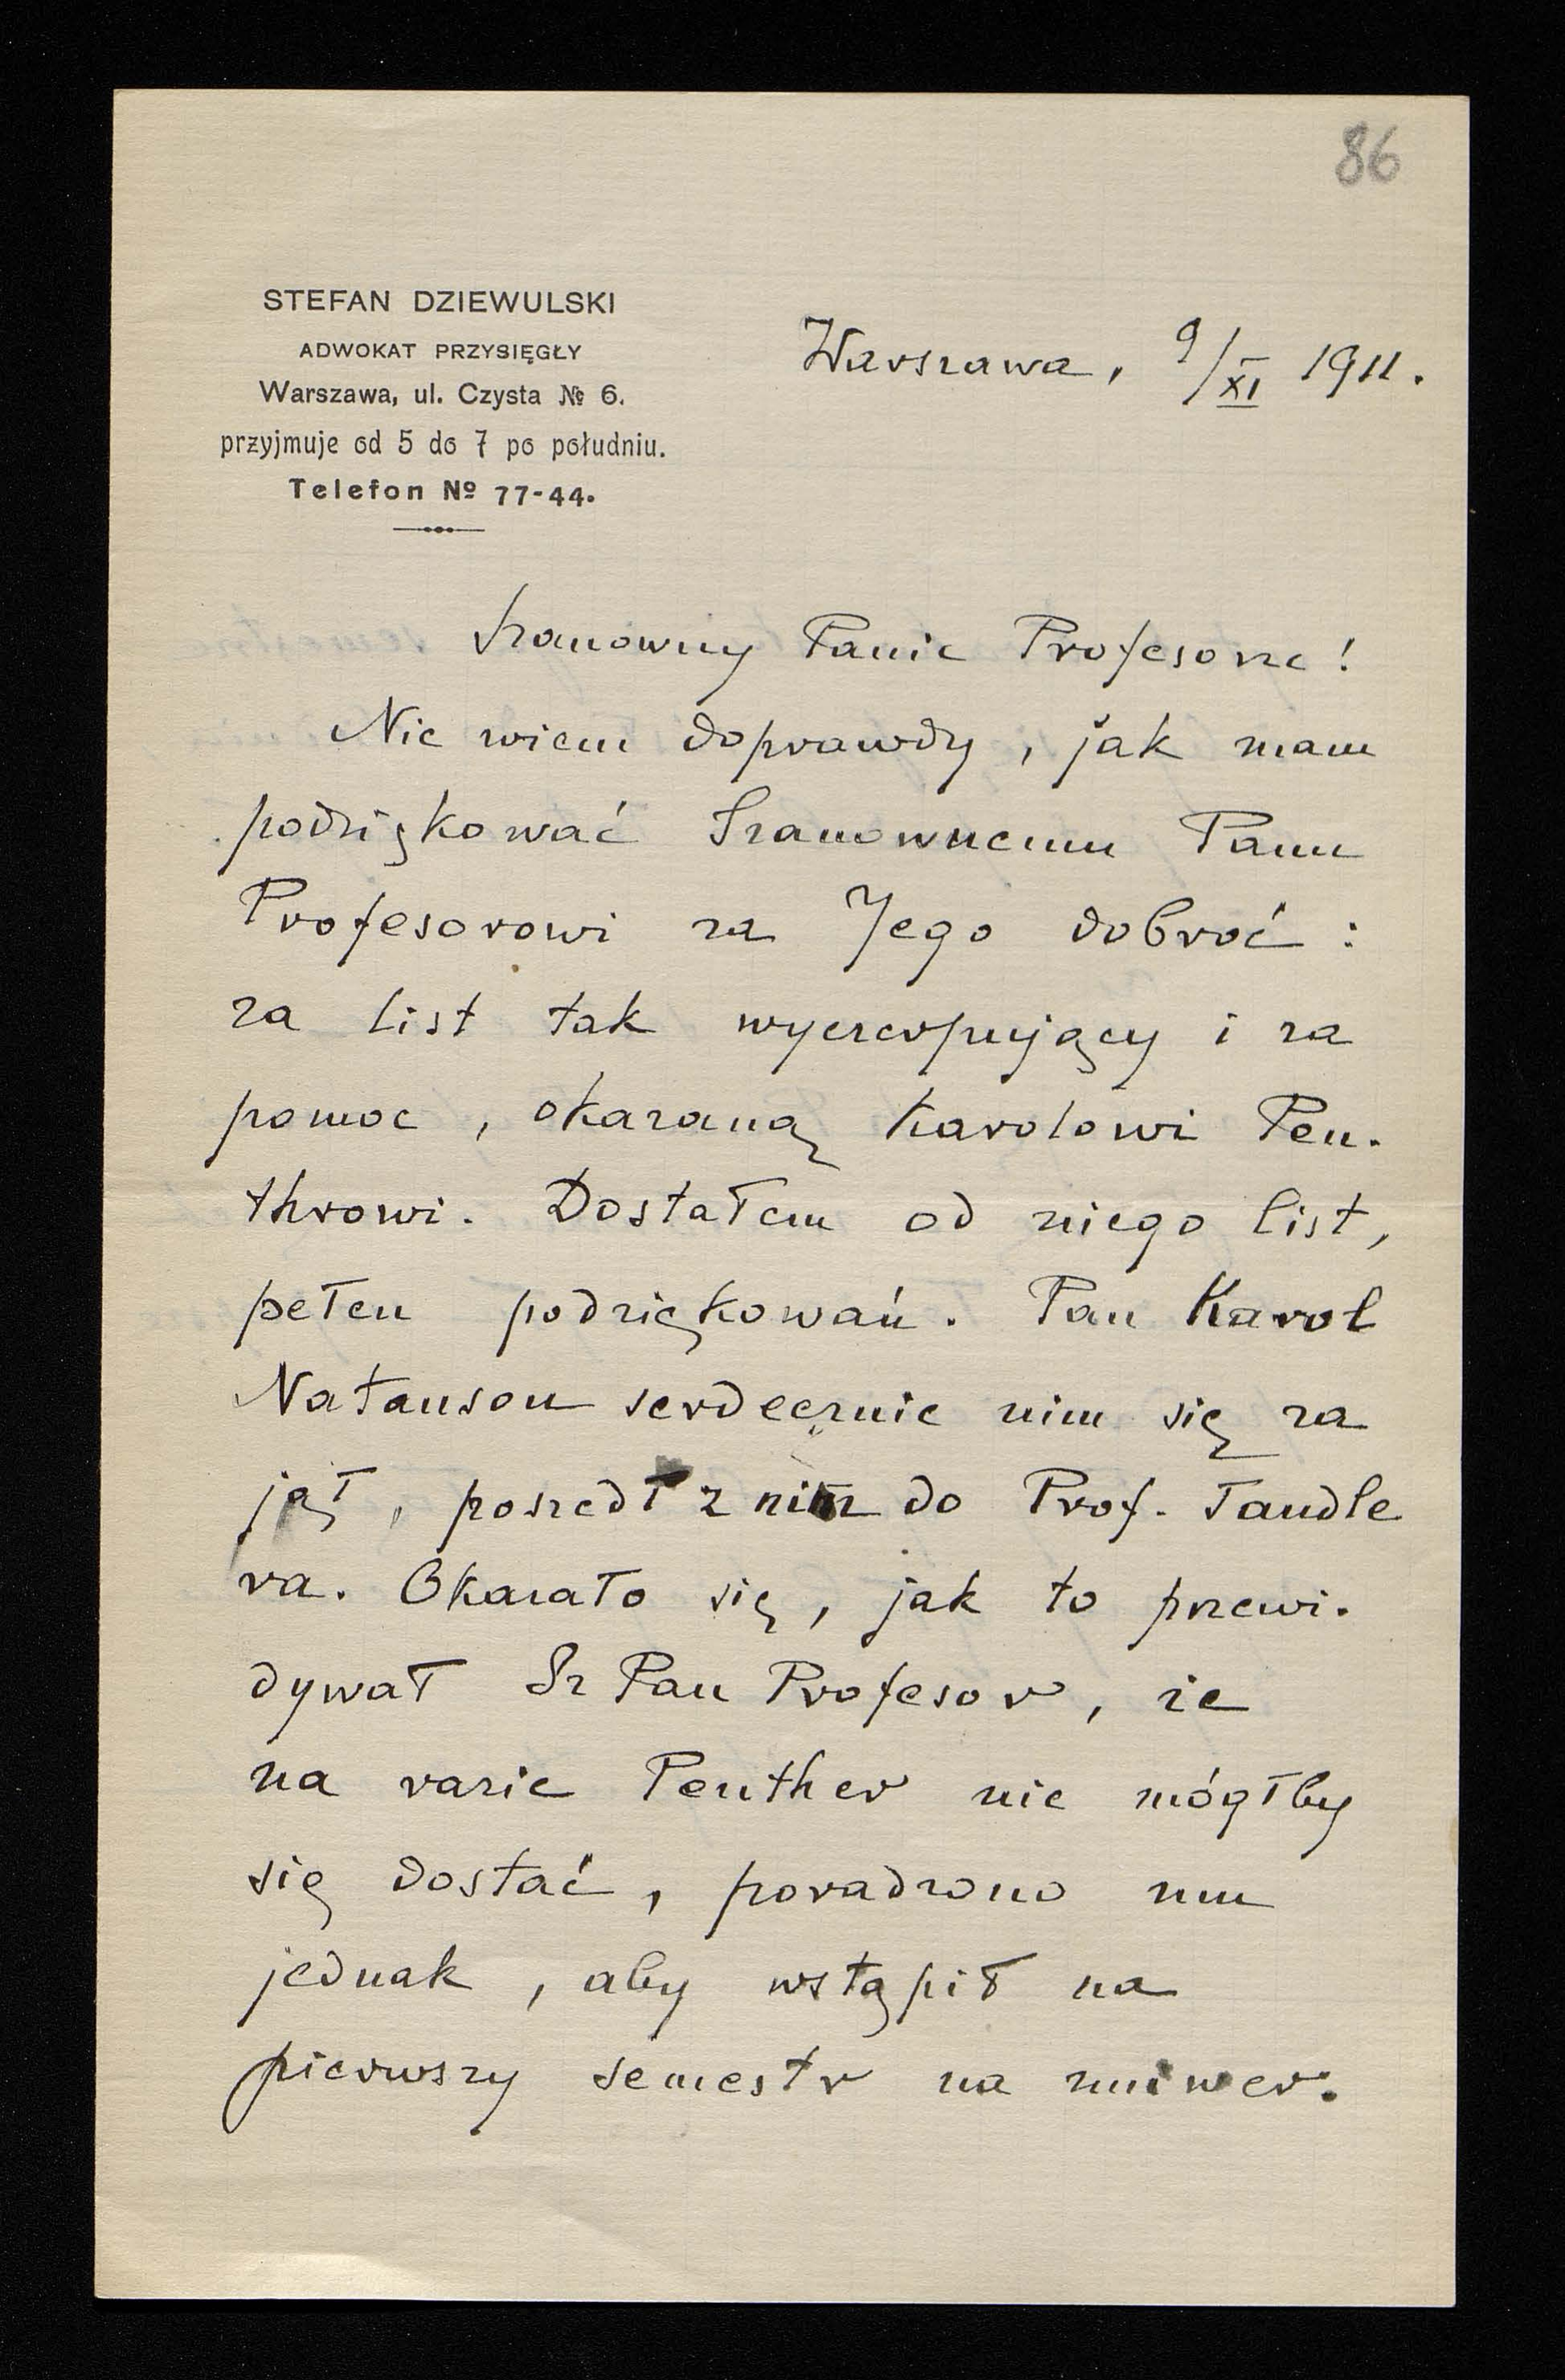 86
STEFAN DZIEWULSKI
ADWOKAT PRZYSIĘGŁY
Warszawa, ul. Czysta № 6.
przyjmuje od 5 do 7 po południu.
Telefon № 77-44.
Warszawa, 9/XI 1911.
Szanowny Panie Profesorze!
Nie wiem doprawdy, jak mam
podziękować Szanownemu Panu
Profesorowi za Jego dobroć:
za list tak wyczerpujący i za
pomoc, okazaną Karolowi Pen-
throwi. Dostałem od niego list,
pełen podziękowań. Pan Karol
Natanson serdecznie nim się za
jął, poszedł z nim do Prof. Tandle
ra. Okazało się, jak to przewi-
dywał Sz Pan Profesor, że
na razie Penther nie mógłby
się dostać, poradzono mu
jednak, aby wstąpił na
pierwszy semestr na uniwer-